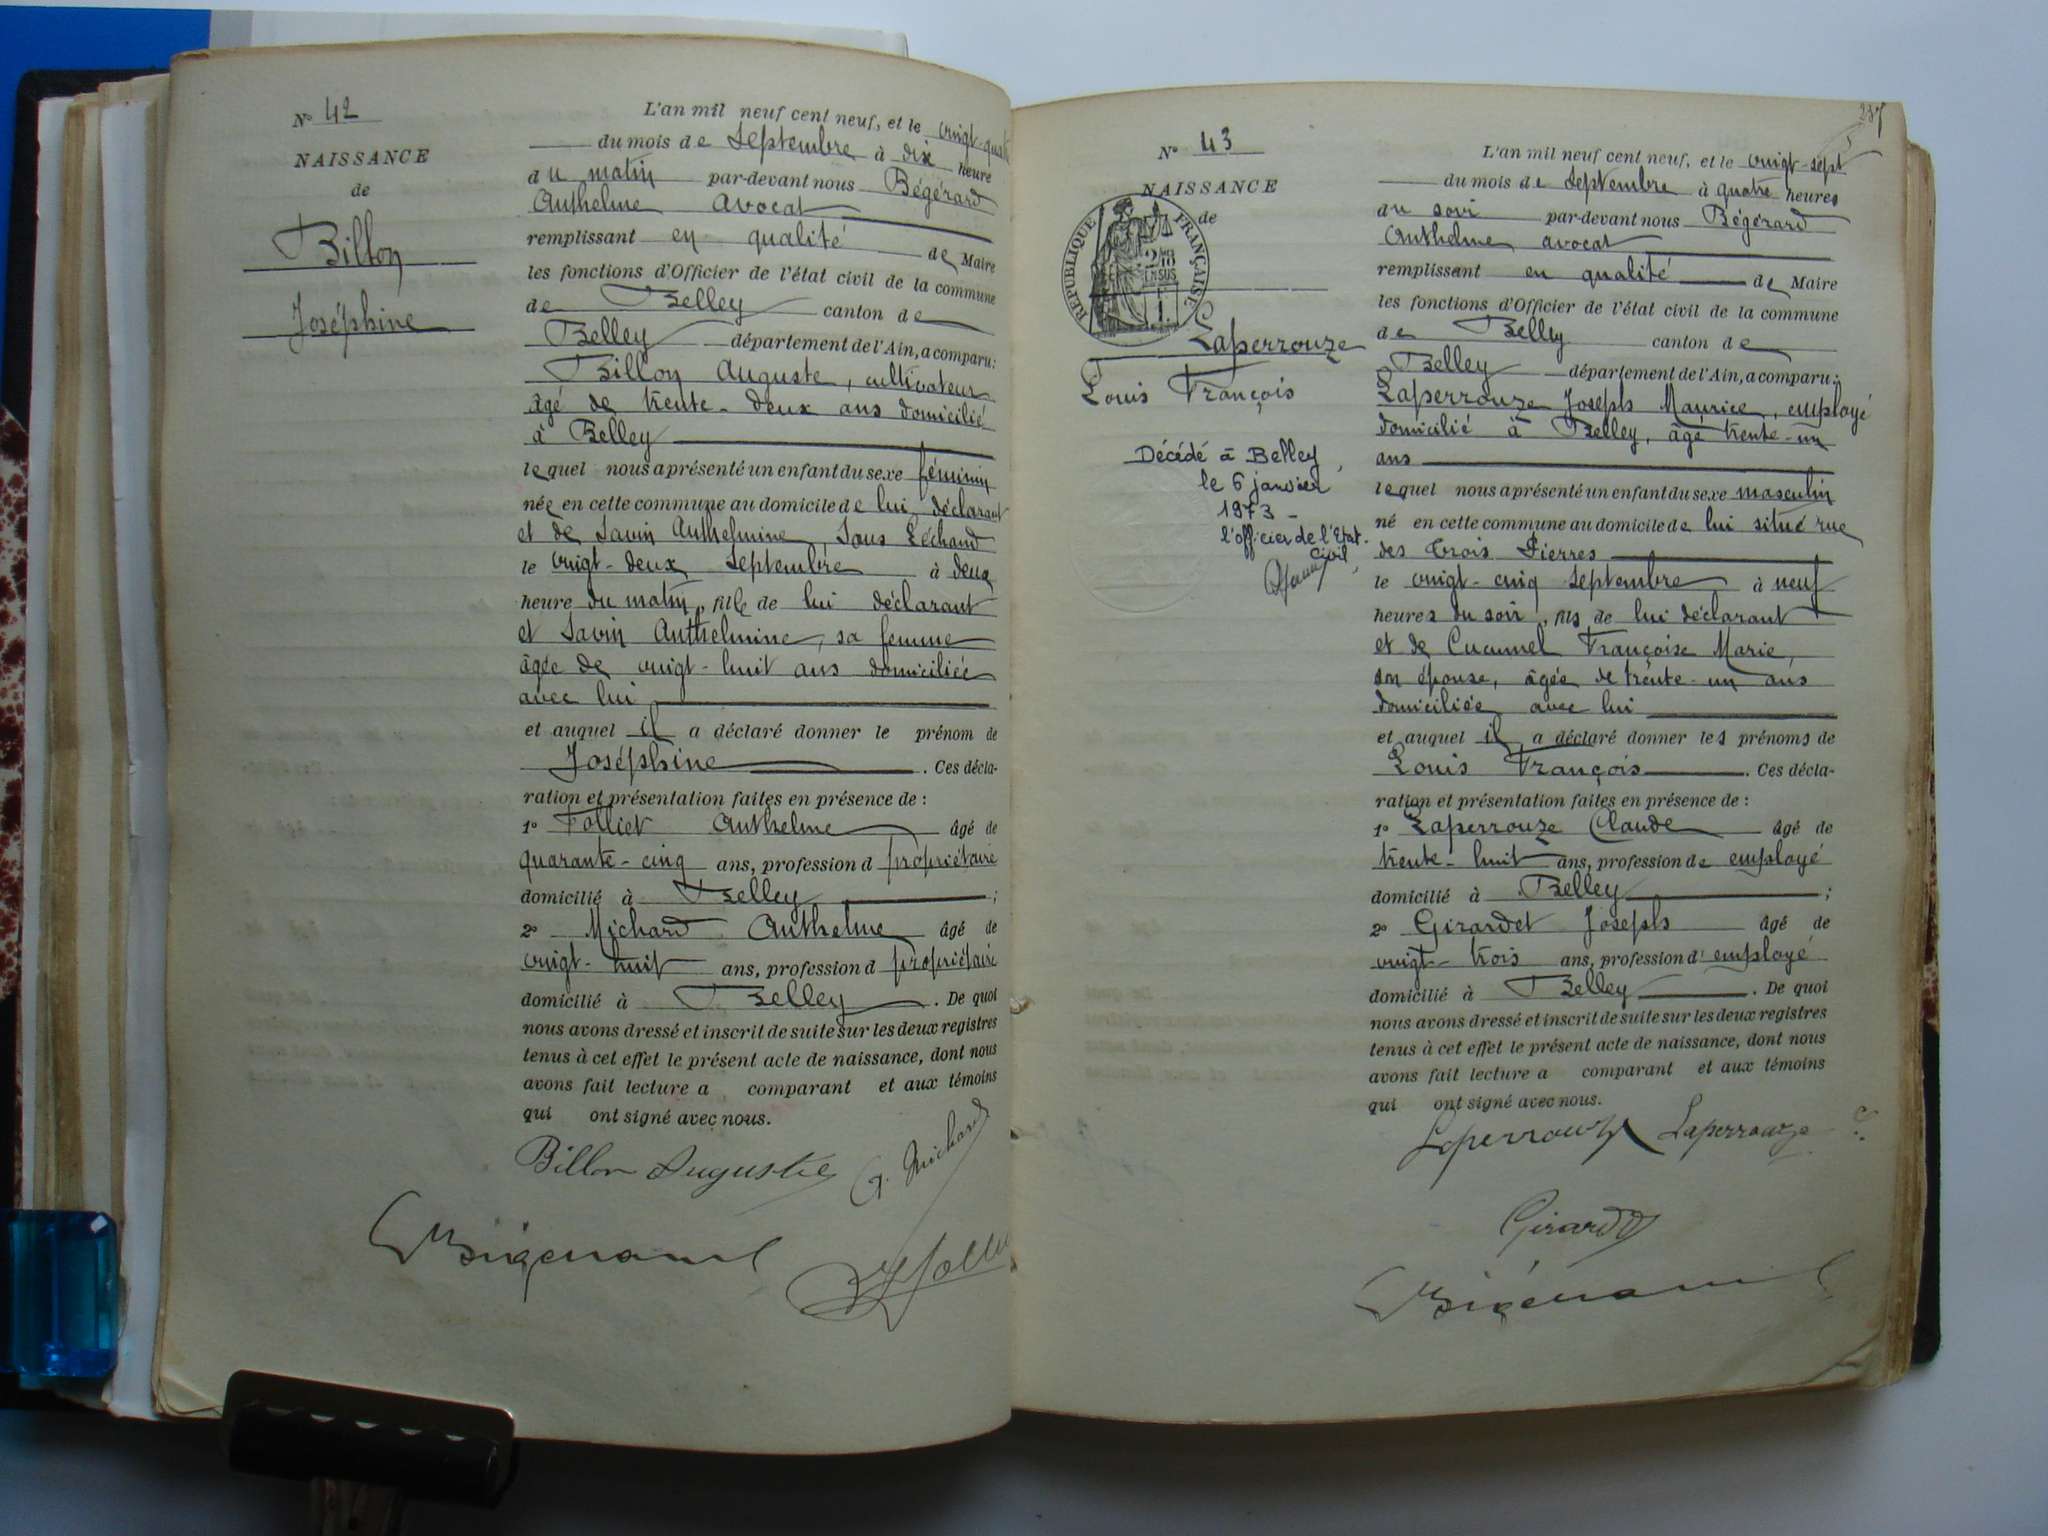 N° 42
NAISSANCE
de
Billon
Joséphine
L'an mil neuf cent neuf, et le vingt-quatre
du mois de Septembre à dix heure
du matin par-devant nous Bégérard
Anthelme avocat
remplissant en qualité de Maire
les fonctions d'Officier de l'état civil de la commune
de Belley canton de
Belley département de l'Ain, a comparu:
Billon Auguste, cultivateur
âgé de trente-deux ans domicilié
à Belley
lequel nous a présenté un enfant du sexe féminin
née en cette commune au domicile de lui déclarant
et de Savin Anthelmine, Sous Léchaud
le vingt-deux Septembre à deux
heure du matin, fille de lui déclarant
et Savin Anthelmine, sa femme
âgée de vingt-huit ans domiciliée
avec lui
et auquel il a déclaré donner le prénom de
Joséphine. Ces décla-
ration et présentation faites en présence de :
1° Folliet Anthelme âgé de
quarante-cinq ans, profession d propriétaire
domicilié à Belley ;
2° Michard Anthelme âgé de
vingt-huit ans, profession d propriétaire
domicilié à Belley. De quoi
nous avons dressé et inscrit de suite sur les deux registres
tenus à cet effet le présent acte de naissance, dont nous
avons fait lecture a comparant et aux témoins
qui ont signé avec nous.
Billon Auguste A. Michard
237
N° 43
NAISSANCE
de
RÉPUBLIQUE FRANÇAISE
2/10 EN SUS
Laperrouze
Louis François
Décédé à Belley,
le 6 janvier
1973 -
l'officier de l'Etat
civil,
L'an mil neuf cent neuf, et le vingt-sept
du mois de Septembre à quatre heures
du soir par-devant nous Bégérard
Anthelme avocat
remplissant en qualité de Maire
les fonctions d'Officier de l'état civil de la commune
de Belley canton de
Belley département de l'Ain, a comparu:
Laperrouze Joseph Maurice, employé
domicilié à Belley, âgé trente-un
ans
lequel nous a présenté un enfant du sexe masculin
né en cette commune au domicile de lui situé rue
des Trois Pierres
le vingt-cinq Septembre à neuf
heures du soir, fils de lui déclarant
et de Cucumel Françoise Marie,
son épouse, âgée de trente-un ans
domiciliée avec lui
et auquel il a déclaré donner les prénoms de
Louis François. Ces décla-
ration et présentation faites en présence de :
1° Laperrouze Claude âgé de
trente-huit ans, profession de employé
domicilié à Belley ;
2° Girardet Joseph âgé de
vingt-trois ans, profession d' employé
domicilié à Belley. De quoi
nous avons dressé et inscrit de suite sur les deux registres
tenus à cet effet le présent acte de naissance, dont nous
avons fait lecture a comparant et aux témoins
qui ont signé avec nous.
Laperrouze Laperrouze C